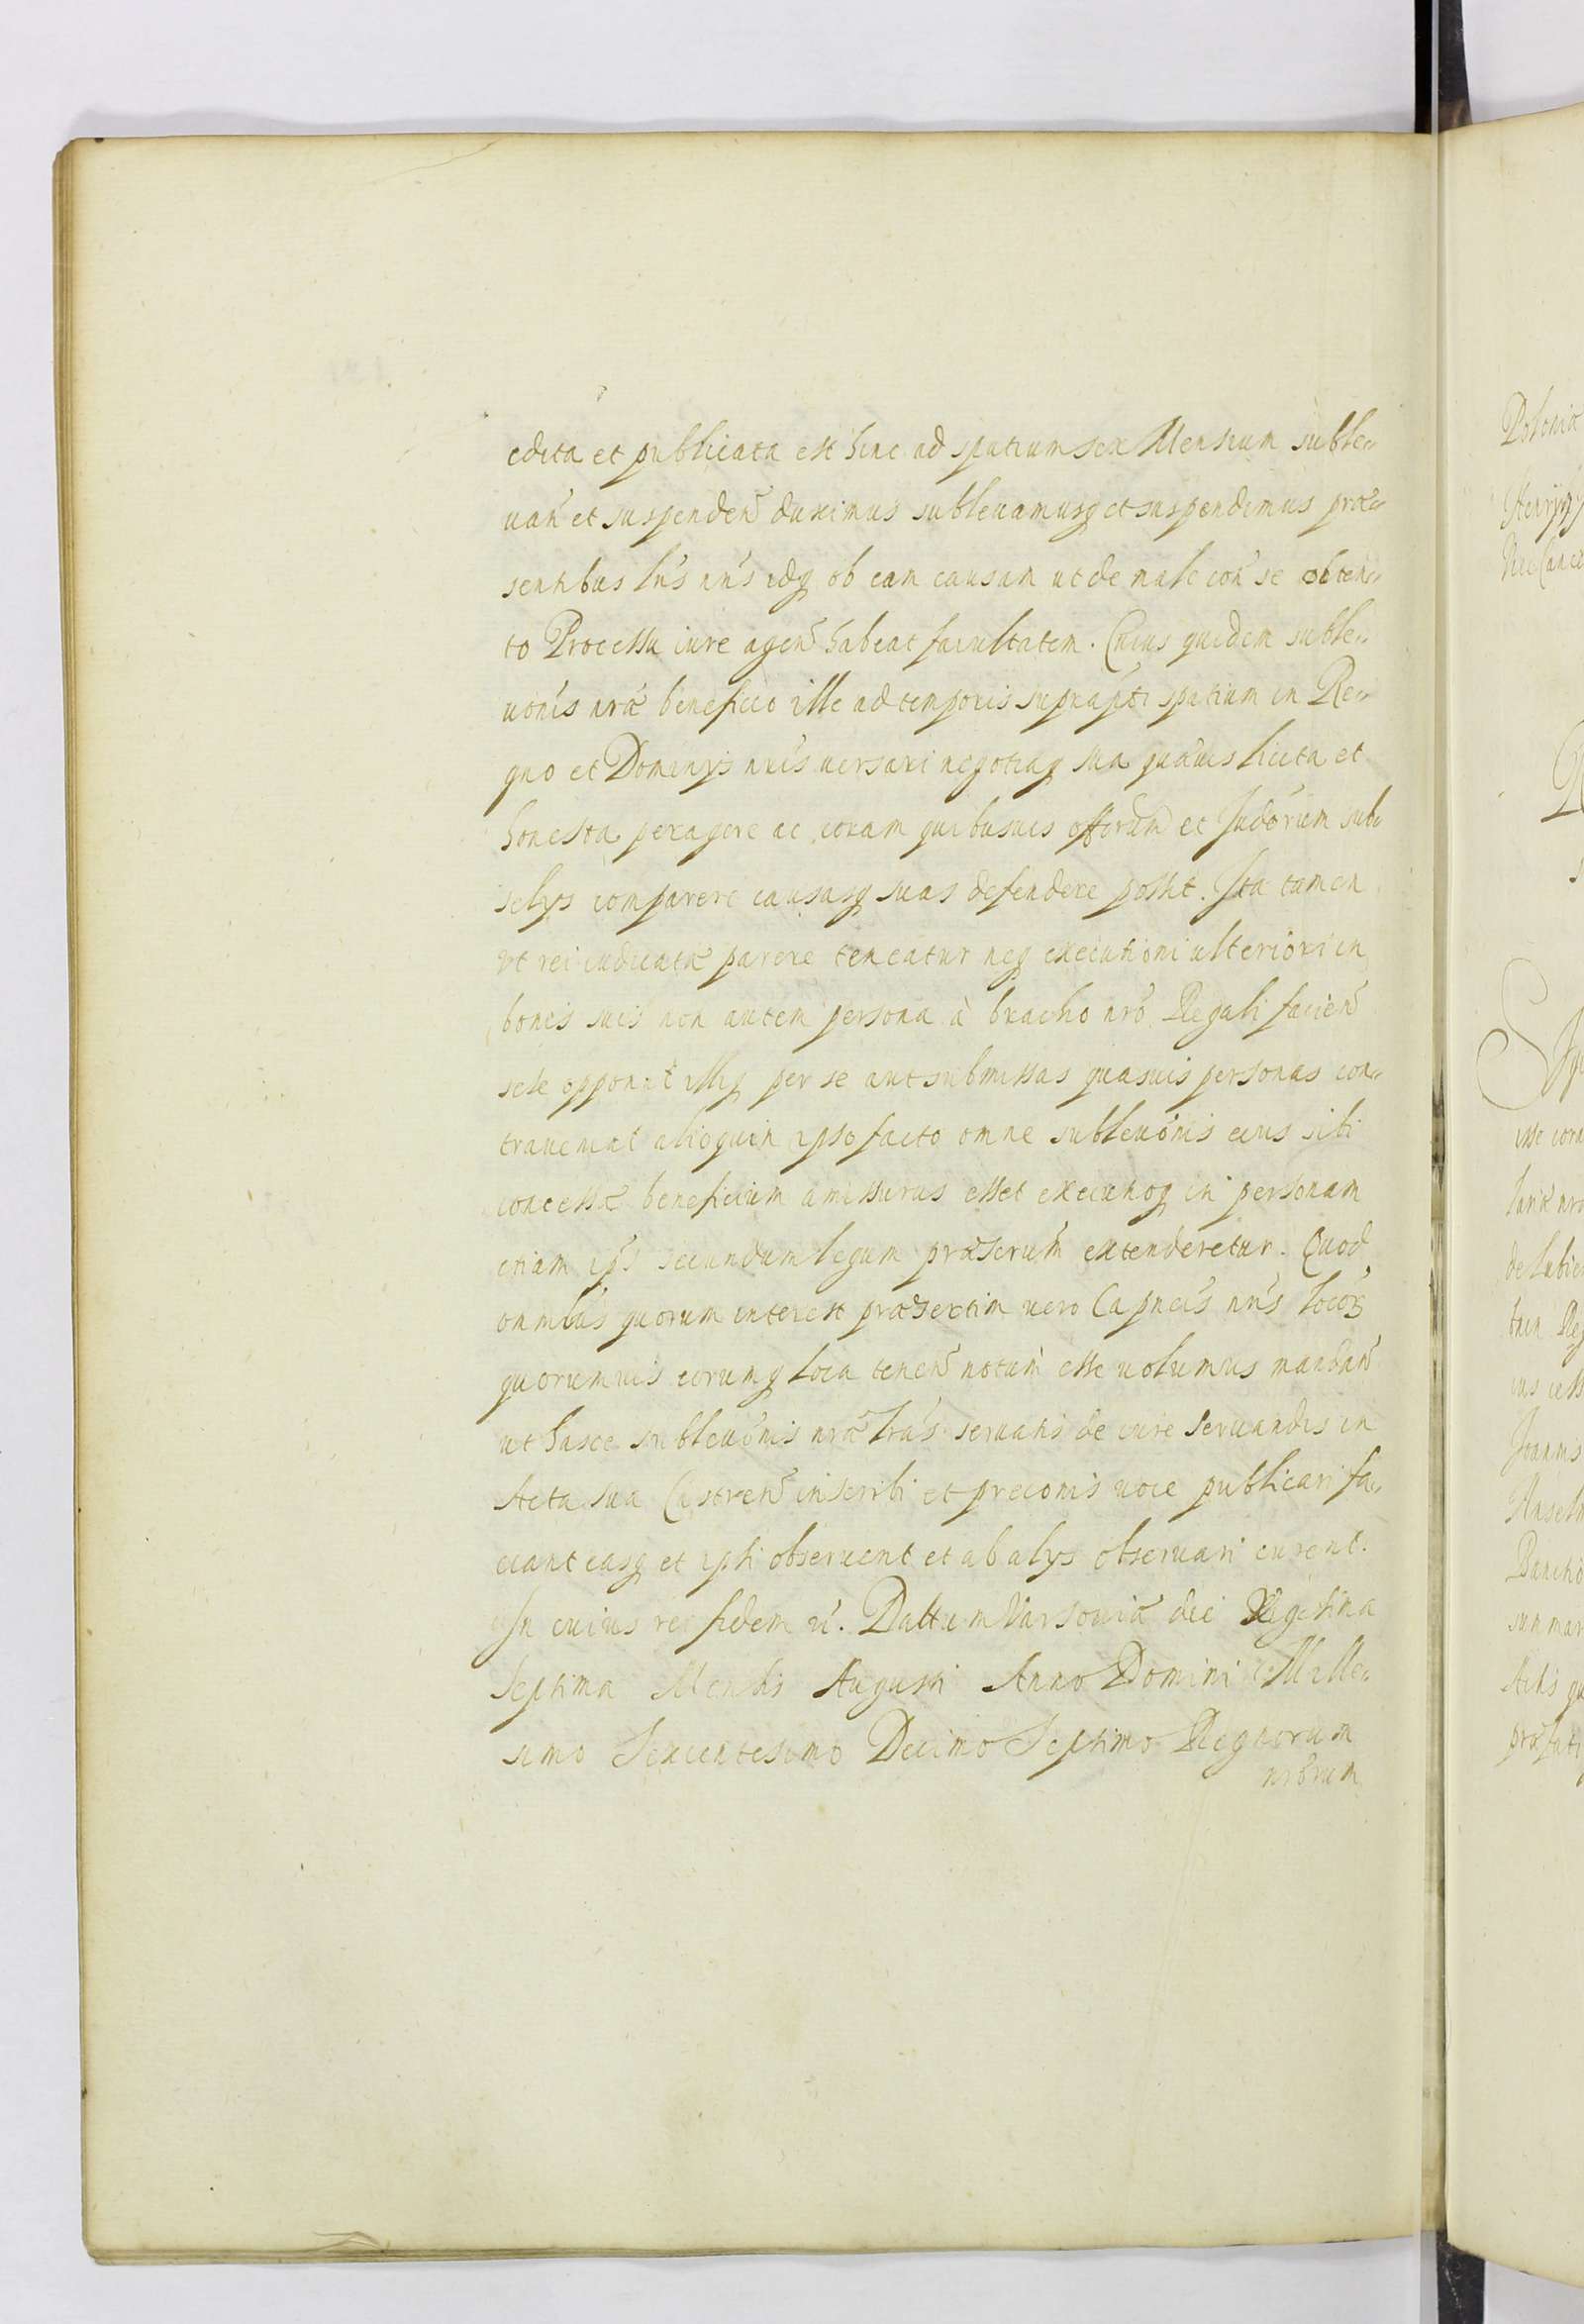 edita et publicata est hinc ad spatium sex Mensium suble-
uan̄ et suspenden̄ duximus subleuamusq et suspendimus præ-
sentibus lr̄is nr̄is idq ob eam causam ut de male con̄ se obten-
to Processu iure agen̄ habeat facultatem. Cuius quidem suble-
uōnis nr̄æ beneficio ille ad temporis supraspt̄i spatium in Re-
gno et Dominijs nr̄is uersari negotiaq sua quæuis licita et
honesta peragere ac coram quibusuis offōrum et Judōrum sub
selijs comparere causasq suas defendere possit. Ita tamen
vt rei iudicatæ parere teneatur neq executioni ulteriori in
bonis suis non autem persona à brachio nrō Regali facien̄
sese opponat illiq per se aut submissas quasuis personas con-
traueniat alioquin ipso facto omne subleuōnis eius sibi
concessæ beneficium amissurus esset executioq in personam
etiam ips̄ secundum legum præscrium̄ extenderetur. Quod
omnibus quorum interest præsertim uero Capneis̄ nr̄is locor̄
quorumuis eorumq loca tenen̄ notum esse uolumus mandan̄
ut hasce subleuōnis nr̄æ lr̄as seruatis de iure seruandis in
Acta sua Castren̄ inscribi et preconis uoce publicari fa-
ciant easq et ipsi obseruent et ab alijs obseruari curent.
In cuius rei fidem et̄. Dattum Varsouiæ die Vigesima
Septima Mensis Augusti Anno Domini Mille-
simo Sexcentesimo Decimo Septimo Regnorum
nr̄orum
Poloniæ